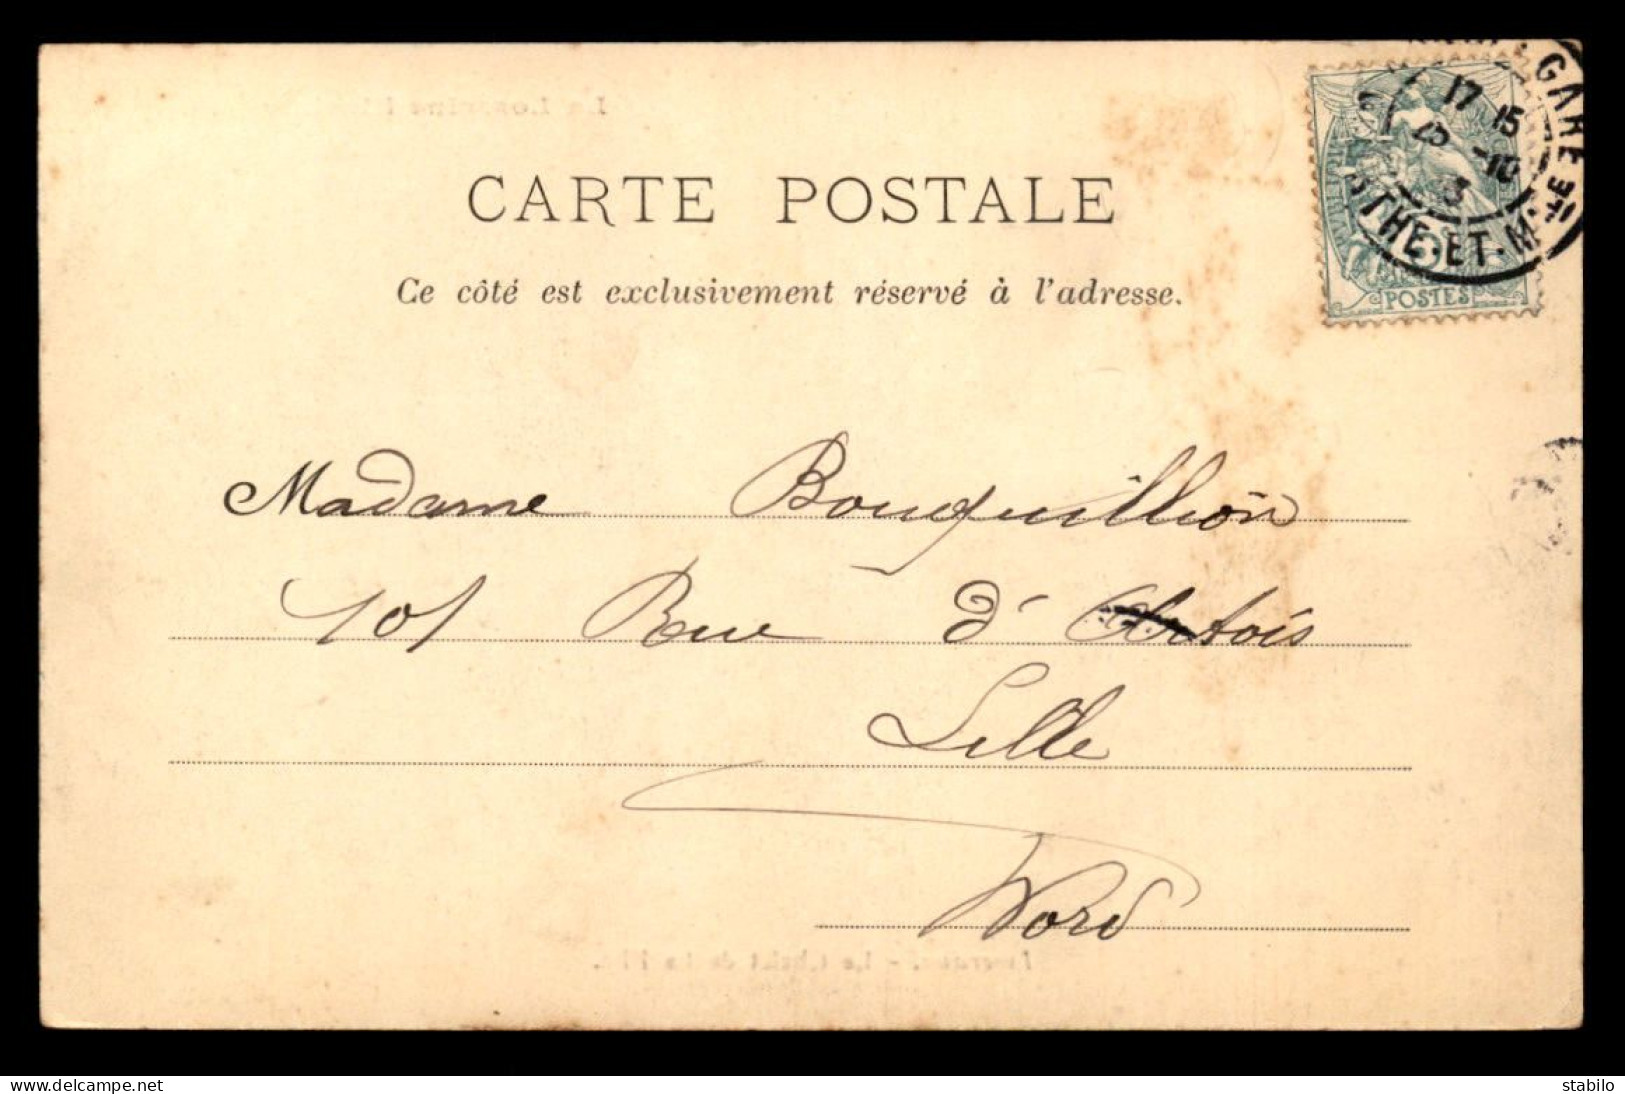 CARTE POSTALE
Ce côté est exclusivement réservé à l'adresse.
GARE
17 15
-10
THE.ET.M
POSTES
Madame Bouquillion
101 Rue d'Artois
Lille
Nord
https://www.delcampe.net
stabilo